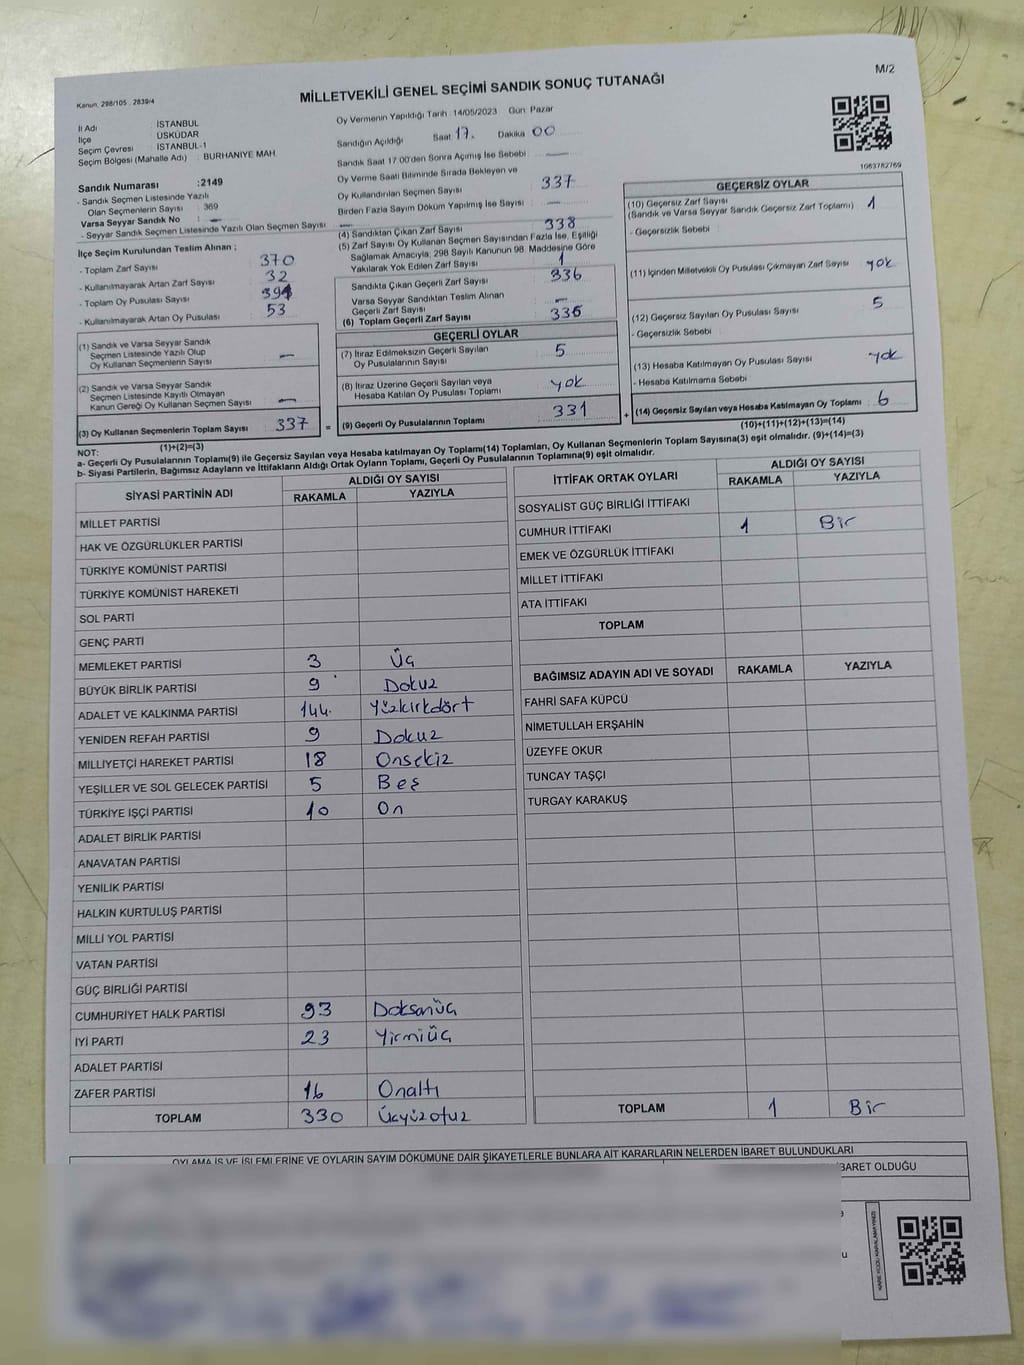 M/2
Kanun, 298/105 . 2839/4
MİLLETVEKİLİ GENEL SEÇİMİ SANDIK SONUÇ TUTANAĞI
İl Adı : İSTANBUL
İlçe : ÜSKÜDAR
Seçim Çevresi : İSTANBUL-1
Seçim Bölgesi (Mahalle Adı) : BURHANİYE MAH.
Sandık Numarası :2149
- Sandık Seçmen Listesinde Yazılı
Olan Seçmenlerin Sayısı : 369
Varsa Seyyar Sandık No : —
- Seyyar Sandık Seçmen Listesinde Yazılı Olan Seçmen Sayısı —
İlçe Seçim Kurulundan Teslim Alınan ;
- Toplam Zarf Sayısı 370
- Kullanılmayarak Artan Zarf Sayısı 32
- Toplam Oy Pusulası Sayısı
- Kullanılmayarak Artan Oy Pusulası 53
(1) Sandık ve Varsa Seyyar Sandık
Seçmen Listesinde Yazılı Olup
Oy Kullanan Seçmenlerin Sayısı —
(2) Sandık ve Varsa Seyyar Sandık
Seçmen Listesinde Kayıtlı Olmayan
Kanun Gereği Oy Kullanan Seçmen Sayısı —
(3) Oy Kullanan Seçmenlerin Toplam Sayısı 337
(1)+(2)=(3)
Oy Vermenin Yapıldığı Tarih : 14/05/2023 Gün: Pazar
Sandığın Açıldığı Saat 17. Dakika 00
Sandık Saat 17:00'den Sonra Açılmış İse Sebebi —
Oy Verme Saati Bitiminde Sırada Bekleyen ve
Oy Kullandırılan Seçmen Sayısı 337
Birden Fazla Sayım Döküm Yapılmış İse Sayısı —
(4) Sandıktan Çıkan Zarf Sayısı 338
(5) Zarf Sayısı Oy Kullanan Seçmen Sayısından Fazla İse, Eşitliği
Sağlamak Amacıyla; 298 Sayılı Kanunun 98. Maddesine Göre
Yakılarak Yok Edilen Zarf Sayısı 1
Sandıkta Çıkan Geçerli Zarf Sayısı 336
Varsa Seyyar Sandıktan Teslim Alınan
Geçerli Zarf Sayısı —
(6) Toplam Geçerli Zarf Sayısı 336
GEÇERLİ OYLAR
(7) İtiraz Edilmeksizin Geçerli Sayılan
Oy Pusulalarının Sayısı 5
(8) İtiraz Üzerine Geçerli Sayılan veya
Hesaba Katılan Oy Pusulası Toplamı yok
= (9) Geçerli Oy Pusulalarının Toplamı 331
GEÇERSİZ OYLAR
1063782769
(10) Geçersiz Zarf Sayısı
(Sandık ve Varsa Seyyar Sandık Geçersiz Zarf Toplamı) 1
- Geçersizlik Sebebi :
(11) İçinden Milletvekili Oy Pusulası Çıkmayan Zarf Sayısı yok
(12) Geçersiz Sayılan Oy Pusulası Sayısı 5
- Geçersizlik Sebebi :
(13) Hesaba Katılmayan Oy Pusulası Sayısı yok
- Hesaba Katılmama Sebebi
+ (14) Geçersiz Sayılan veya Hesaba Katılmayan Oy Toplamı 6
(10)+(11)+(12)+(13)=(14)
NOT:
a- Geçerli Oy Pusulalarının Toplamı(9) ile Geçersiz Sayılan veya Hesaba katılmayan Oy Toplamı(14) Toplamları, Oy Kullanan Seçmenlerin Toplam Sayısına(3) eşit olmalıdır. (9)+(14)=(3)
b- Siyasi Partilerin, Bağımsız Adayların ve İttifakların Aldığı Ortak Oyların Toplamı, Geçerli Oy Pusulalarının Toplamına(9) eşit olmalıdır.
SİYASİ PARTİNİN ADI ALDIĞI OY SAYISI
RAKAMLA YAZIYLA
MİLLET PARTİSİ
HAK VE ÖZGÜRLÜKLER PARTİSİ
TÜRKİYE KOMÜNİST PARTİSİ
TÜRKİYE KOMÜNİST HAREKETİ
SOL PARTİ
GENÇ PARTİ
MEMLEKET PARTİSİ 3 Üç
BÜYÜK BİRLİK PARTİSİ 9 Dokuz
ADALET VE KALKINMA PARTİSİ 144. Yüzkırkdört
YENİDEN REFAH PARTİSİ 9 Dokuz
MİLLİYETÇİ HAREKET PARTİSİ 18 Onsekiz
YEŞİLLER VE SOL GELECEK PARTİSİ 5 Beş
TÜRKİYE İŞÇİ PARTİSİ 10 On
ADALET BİRLİK PARTİSİ
ANAVATAN PARTİSİ
YENİLİK PARTİSİ
HALKIN KURTULUŞ PARTİSİ
MİLLİ YOL PARTİSİ
VATAN PARTİSİ
GÜÇ BİRLİĞİ PARTİSİ
CUMHURİYET HALK PARTİSİ 93 Doksanüç
İYİ PARTİ 23 Yirmiüç
ADALET PARTİSİ
ZAFER PARTİSİ 16 Onaltı
TOPLAM 330 Üçyüzotuz
İTTİFAK ORTAK OYLARI ALDIĞI OY SAYISI
RAKAMLA YAZIYLA
SOSYALİST GÜÇ BİRLİĞİ İTTİFAKI
CUMHUR İTTİFAKI 1 Bir
EMEK VE ÖZGÜRLÜK İTTİFAKI
MİLLET İTTİFAKI
ATA İTTİFAKI
TOPLAM
BAĞIMSIZ ADAYIN ADI VE SOYADI RAKAMLA YAZIYLA
FAHRİ SAFA KÜPCÜ
NİMETULLAH ERŞAHİN
ÜZEYFE OKUR
TUNCAY TAŞÇI
TURGAY KARAKUŞ
TOPLAM 1 Bir
OYLAMA İŞ VE İŞLEMLERİNE VE OYLARIN SAYIM DÖKÜMÜNE DAİR ŞİKAYETLERLE BUNLARA AİT KARARLARIN NELERDEN İBARET BULUNDUKLARI
BARET OLDUĞU
u
KARE KODU KARALAMAYINIZ!